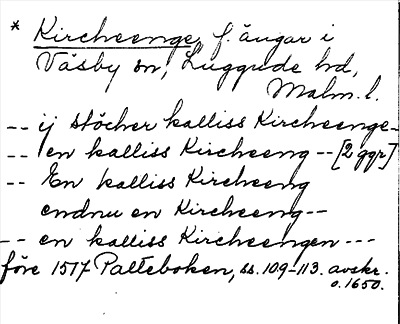 * Kircheenge, f. ängar i
Väsby sn, Luggude hd,
Malm. l.
-- ij stöcher kalliss Kircheenge-
-- en kalliss Kircheeng -- [2 ggr]
-- En kalliss Kircheeng
endnu en Kircheeng--
-- en kalliss Kircheengen ---
före 1517 Palteboken, ss. 109-113. avskr.
o. 1650.